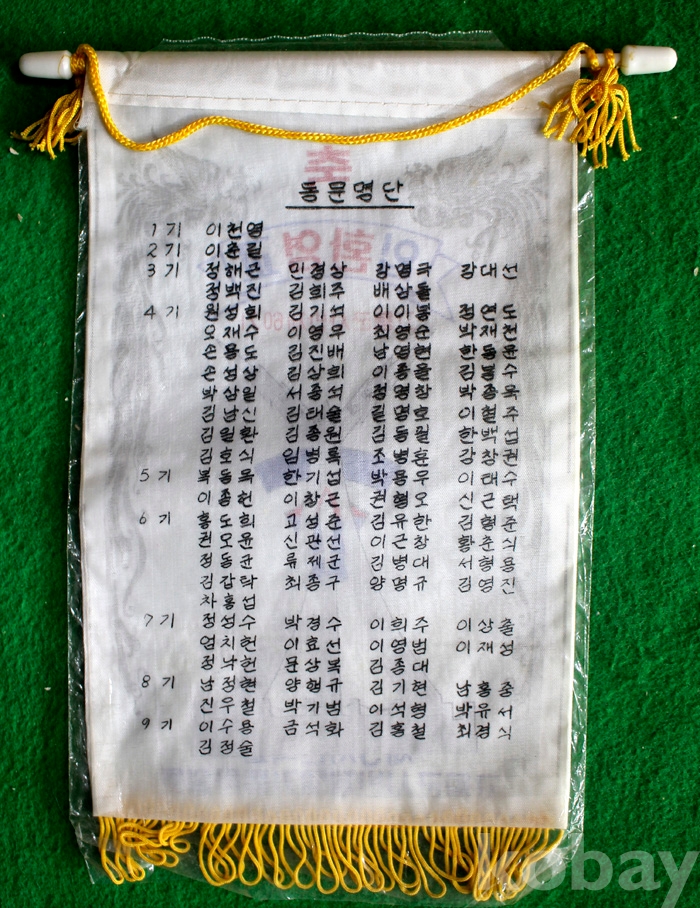 동문명단
1기 이천영
2기 이춘길
3기 정해근 민경상 강영국 강대선
정백진 김희주 배삼돌
4기 원성희 김기석 이이동 정연도
오재수 이영우 최영순 박재천
손용도 김진배 남영현
손성상 김상희 수
박삼일 서종석 정영학 박종목
김남신 김태술 길명호 이철주
김일환 김종원 김동일 한백섭
김호식 임병록 조병훈 강창권
5기 복동목 한기섭 박용우 이태수
이종헌 이창근 권형오 신근택
6기 홍도희 고성춘 김유한 김형준
권오윤 신관선 이근창 황춘식
정동균 류제군 김병대 서형용
김갑탁 최종구 양명규 김영진
차홍섭
7기 정성수 박경수 이희주 이상출
엄치헌 이효선 이영범 이재성
정낙헌 문상복 김종대
8기 남정현 양형규 김기현 남홍중
진우철 박기범 이석형 박유서
9기 이수용 금석화 김홍철 최경식
김정술
kobay